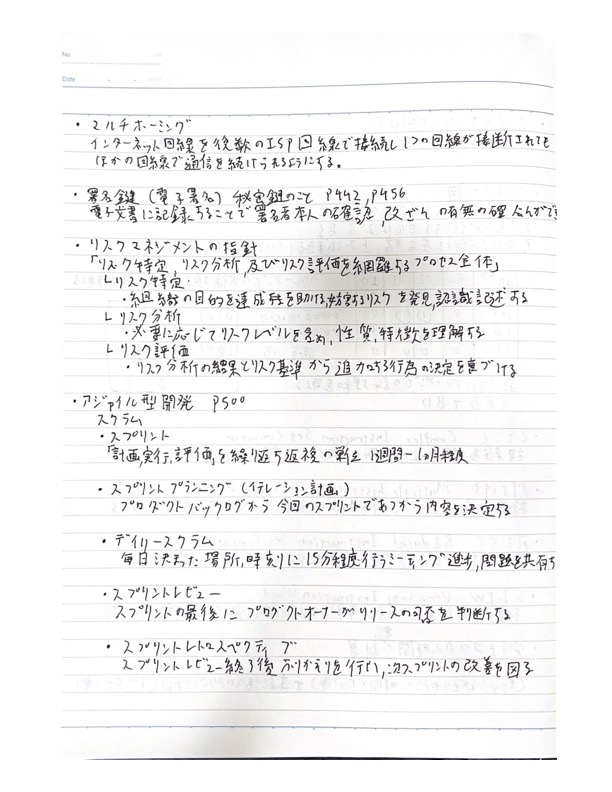 No.
Date
・マルチホーミング
インターネット回線を複数のISP回線で接続し1つの回線が接断されても
ほかの回線で通信を続けられるようにする。
・署名鍵(電子署名) 秘密鍵のこと P442,P456
電子文書に記録することで署名者本人の確認,改ざんの有無の確にんができ
・リスクマネジメントの指針
「リスク特定,リスク分析,及びリスク評価を網羅するプロセス全体」
└リスク特定
・組織の目的を達成を助ける,妨害するリスクを発見,認識記述する
└リスク分析
・必要に応じてリスクレベルを含め,性質,特徴を理解する
└リスク評価
・リスク分析の結果とリスク基準から追加する行為の決定を裏づける
・アジャイル型開発 P500
スクラム
・スプリント
「計画,実行,評価」を繰り返す 1週間〜1ヵ月程度
・スプリントプランニング(イテレーション計画)
プロダクトバックログから今回のスプリントであつかう内容を決定する
・デイリースクラム
毎日決まった場所,時刻に15分程度行うミーティング進歩,問題を共有す
・スプリントレビュー
スプリントの最後にプロダクトオーナーがリリースの可否を判断する
・スプリントレトロスペクティブ
スプリントレビュー終了後ふりかえりを行い,次スプリントの改善を図る